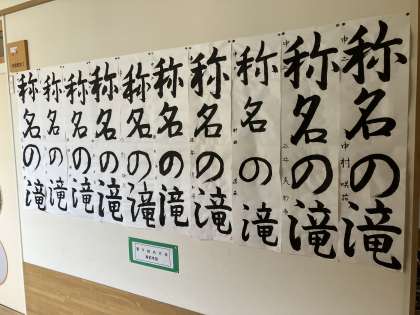 称名の滝
中二
中村
称名の滝
中
称名の滝
称名の滝
称名の滝
称名の滝
称名の滝
称名の滝
称名の滝
称名の滝